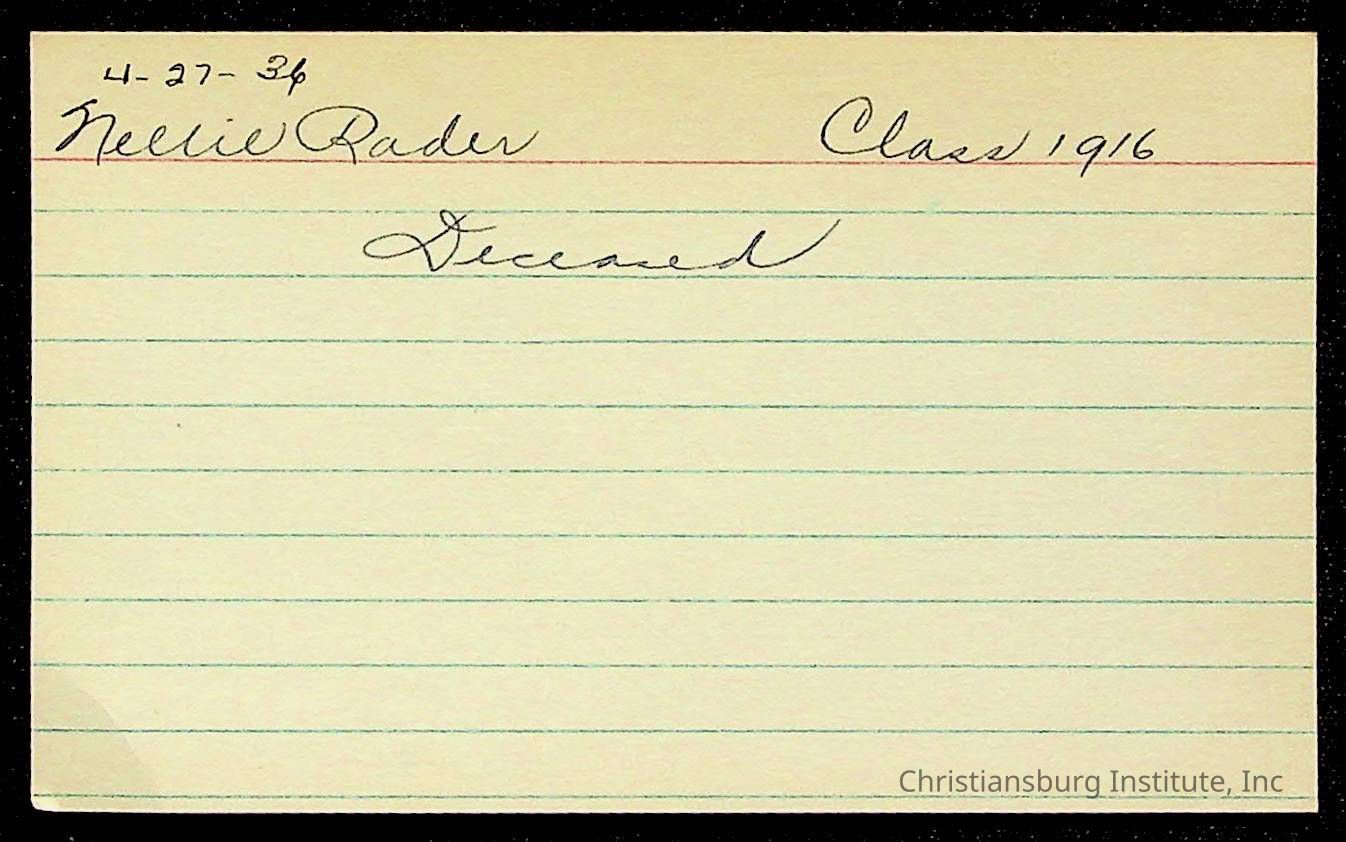 4-27-36
Nellie Rader Class 1916
Deceased
Christiansburg Institute, Inc